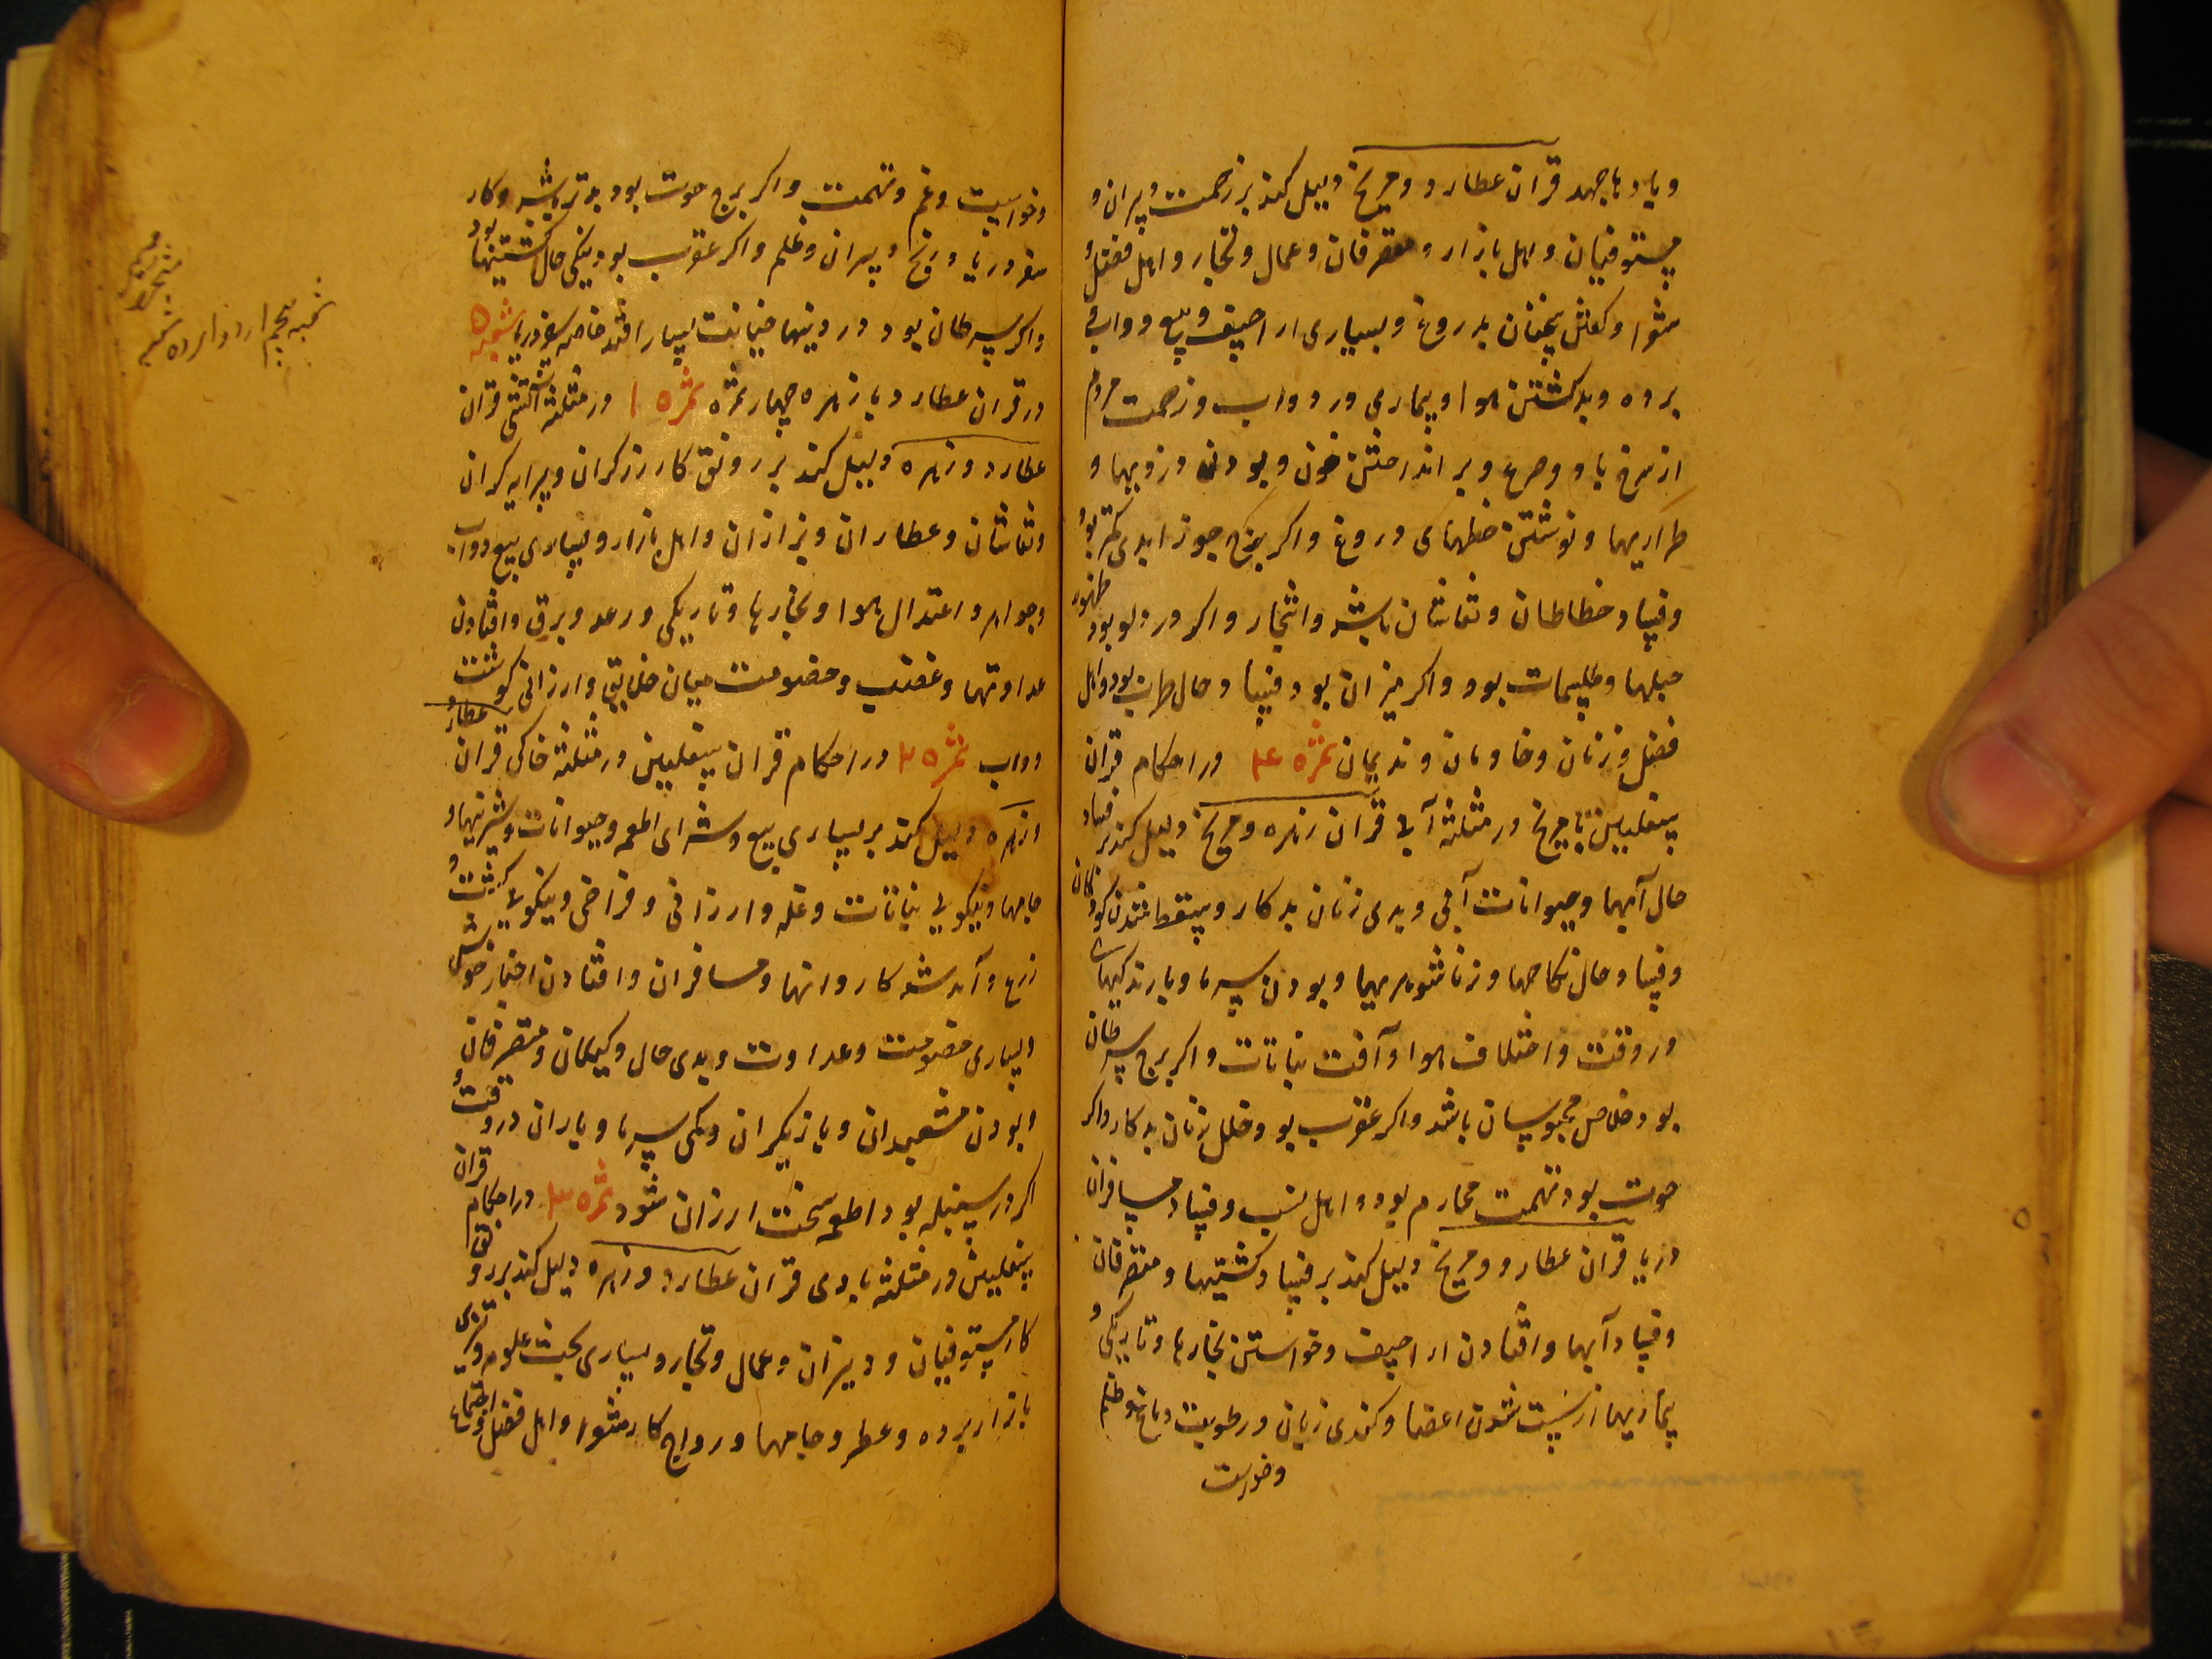 و بادها جهد قران عطارد و مریخ دلیل کند بر زحمت دبیران و
مستوفیان و اهل بازار و متصرفان و عمال و تجار و اهل فضل و
شعرا و کفتن سخنان بدروغ و بسیاری اراجیف و بیع دواب و
برده و بدکشتن هوا و بیماری در دواب و زحمت مردم
از سرخ باد و صرع و بر انداختن خون و بودن دزدیها و
طراریها و نوشتن خطهای دروغ و اکر برج جوزا بدی کمتر بود
و فساد خطاطان و نقاشان باشد و اشجار و اکر در دلو بود ظهور
حیلها و طلسمات بود و اکر میزان بود فساد حال طرب بود و اهل
فضل و زنان و خادمان و ندیمان ثمره ۴ در احکام قران
سفلیین با مریخ در مثلثه آبی قران زهره و مریخ دلیل کند بر فساد
حال آبها و حیوانات آبی و بدی زنان بدکار و سقط شدن کودکان
و فساد حال نکاحها و زناشوهریها و بودن سرما و بارندکیهای
در وقت و اختلاف هوا و آفت نباتات و اکر برج سرطان
بود خلاص محبوسان باشد و اکر عقرب بود خلل زنان بدکار و اکر
حوت بود تهمت محارم بود و اهل نسب و فساد مسافران
دریا قران عطارد و مریخ دلیل کند بر فساد کشتیها و متصرفان
و فساد آبها و افتادن اراجیف و خواستن بخارها و تاریکی و
بیماریها از سست شدن اعضا و کندی زبان و رطوبت دماغ و ظلم
و خواست
و خواست و غم و تهمت و اکر برج حوت بود بدتر باشد و کار
سفر دریا و رنج دبیران و ظلم و اکر عقرب بود نیکی حال کشتیها بود
و اکر سرطان بود در دینها خیانت بسیار افتد خاصه سفر دریا شعبه ۵
در قران عطارد با زهره چهار ثمره ثمره ۱ در مثلثه آتشی قران
عطارد و زهره دلیل کند بر رونق کار زرکران و پیرایه کران
و نقاشان و عطاران و بزازان و اهل بازار و بسیاری بیع دواب
و جواهر و اعتدال هوا و بخارها و تاریکی و رعد و برق و افتادن
عداوتها و غضب و خصومت میان خلایق و ارزانی کوشت و
دواب ثمره ۲ در احکام قران سفلیین در مثلثه خاکی قران عطارد
و زهره دلیل کند بر بسیاری بیع و شرای اطعمه و حیوانات و شیرینیها و
جامها و نیکویی نباتات و غله و ارزانی و فراخی و نیکویی کشت و
زرع و آمد شد کاروانها و مسافران و افتادن اخبار خوش
و بسیاری خصومت و عداوت و بدی حال وکیلان و متصرفان
و بودن مشعبدان و بازیکران و کمی سرما و باران در وقت و
اکر در سنبله بود اطعمه سخت ارزان شود ثمره ۳ در احکام قران
سفلیین در مثلثه بادی قران عطارد و زهره دلیل کند بر رونق
کار مستوفیان و دبیران و عمال و تجار و بسیاری بحث علوم و تیزی
بازار برده و عطر و جامها و رواج کار شعرا و اهل فضل و اجتماع